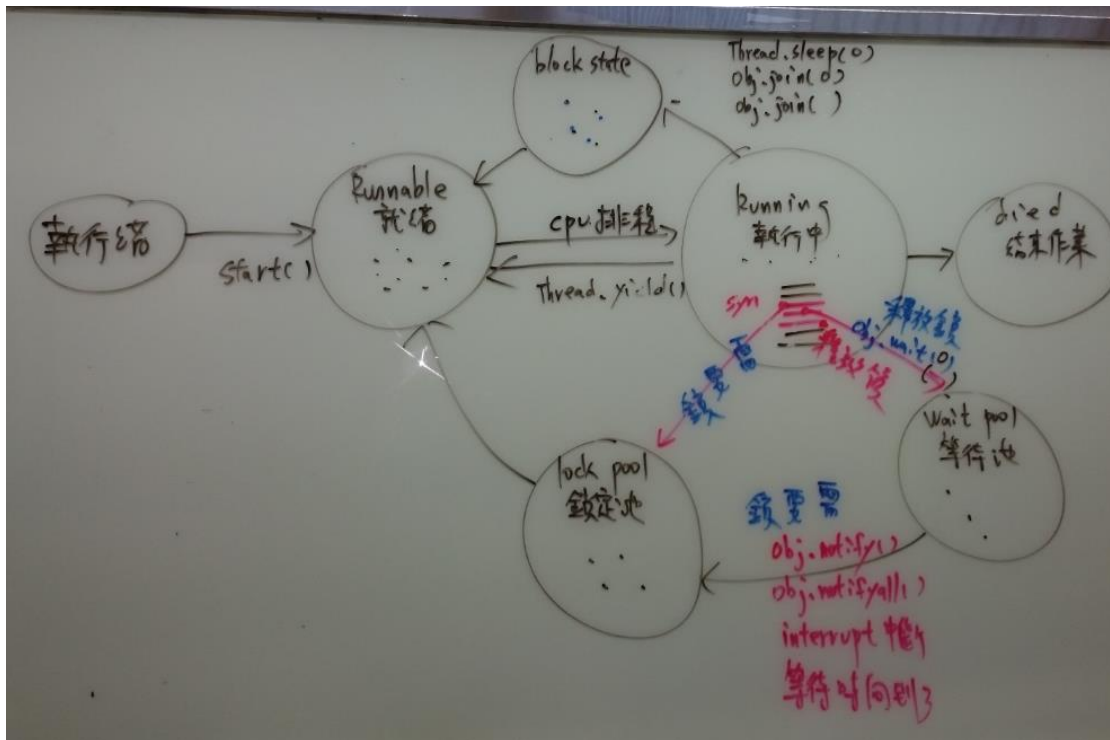 block state
Thread.sleep(0)
Obj.join(0)
obj.join( )
執行緒
start()
Runnable
就緒
cpu排程
Thread.yield()
Running
執行中
died
結束作業
syn
需要鎖
釋放鎖
釋放鎖
obj.wait(0)
( )
wait pool
等待池
lock pool
鎖定池
需要鎖
Obj.notify()
obj.notifyall()
interrupt 中斷
等待时间到了